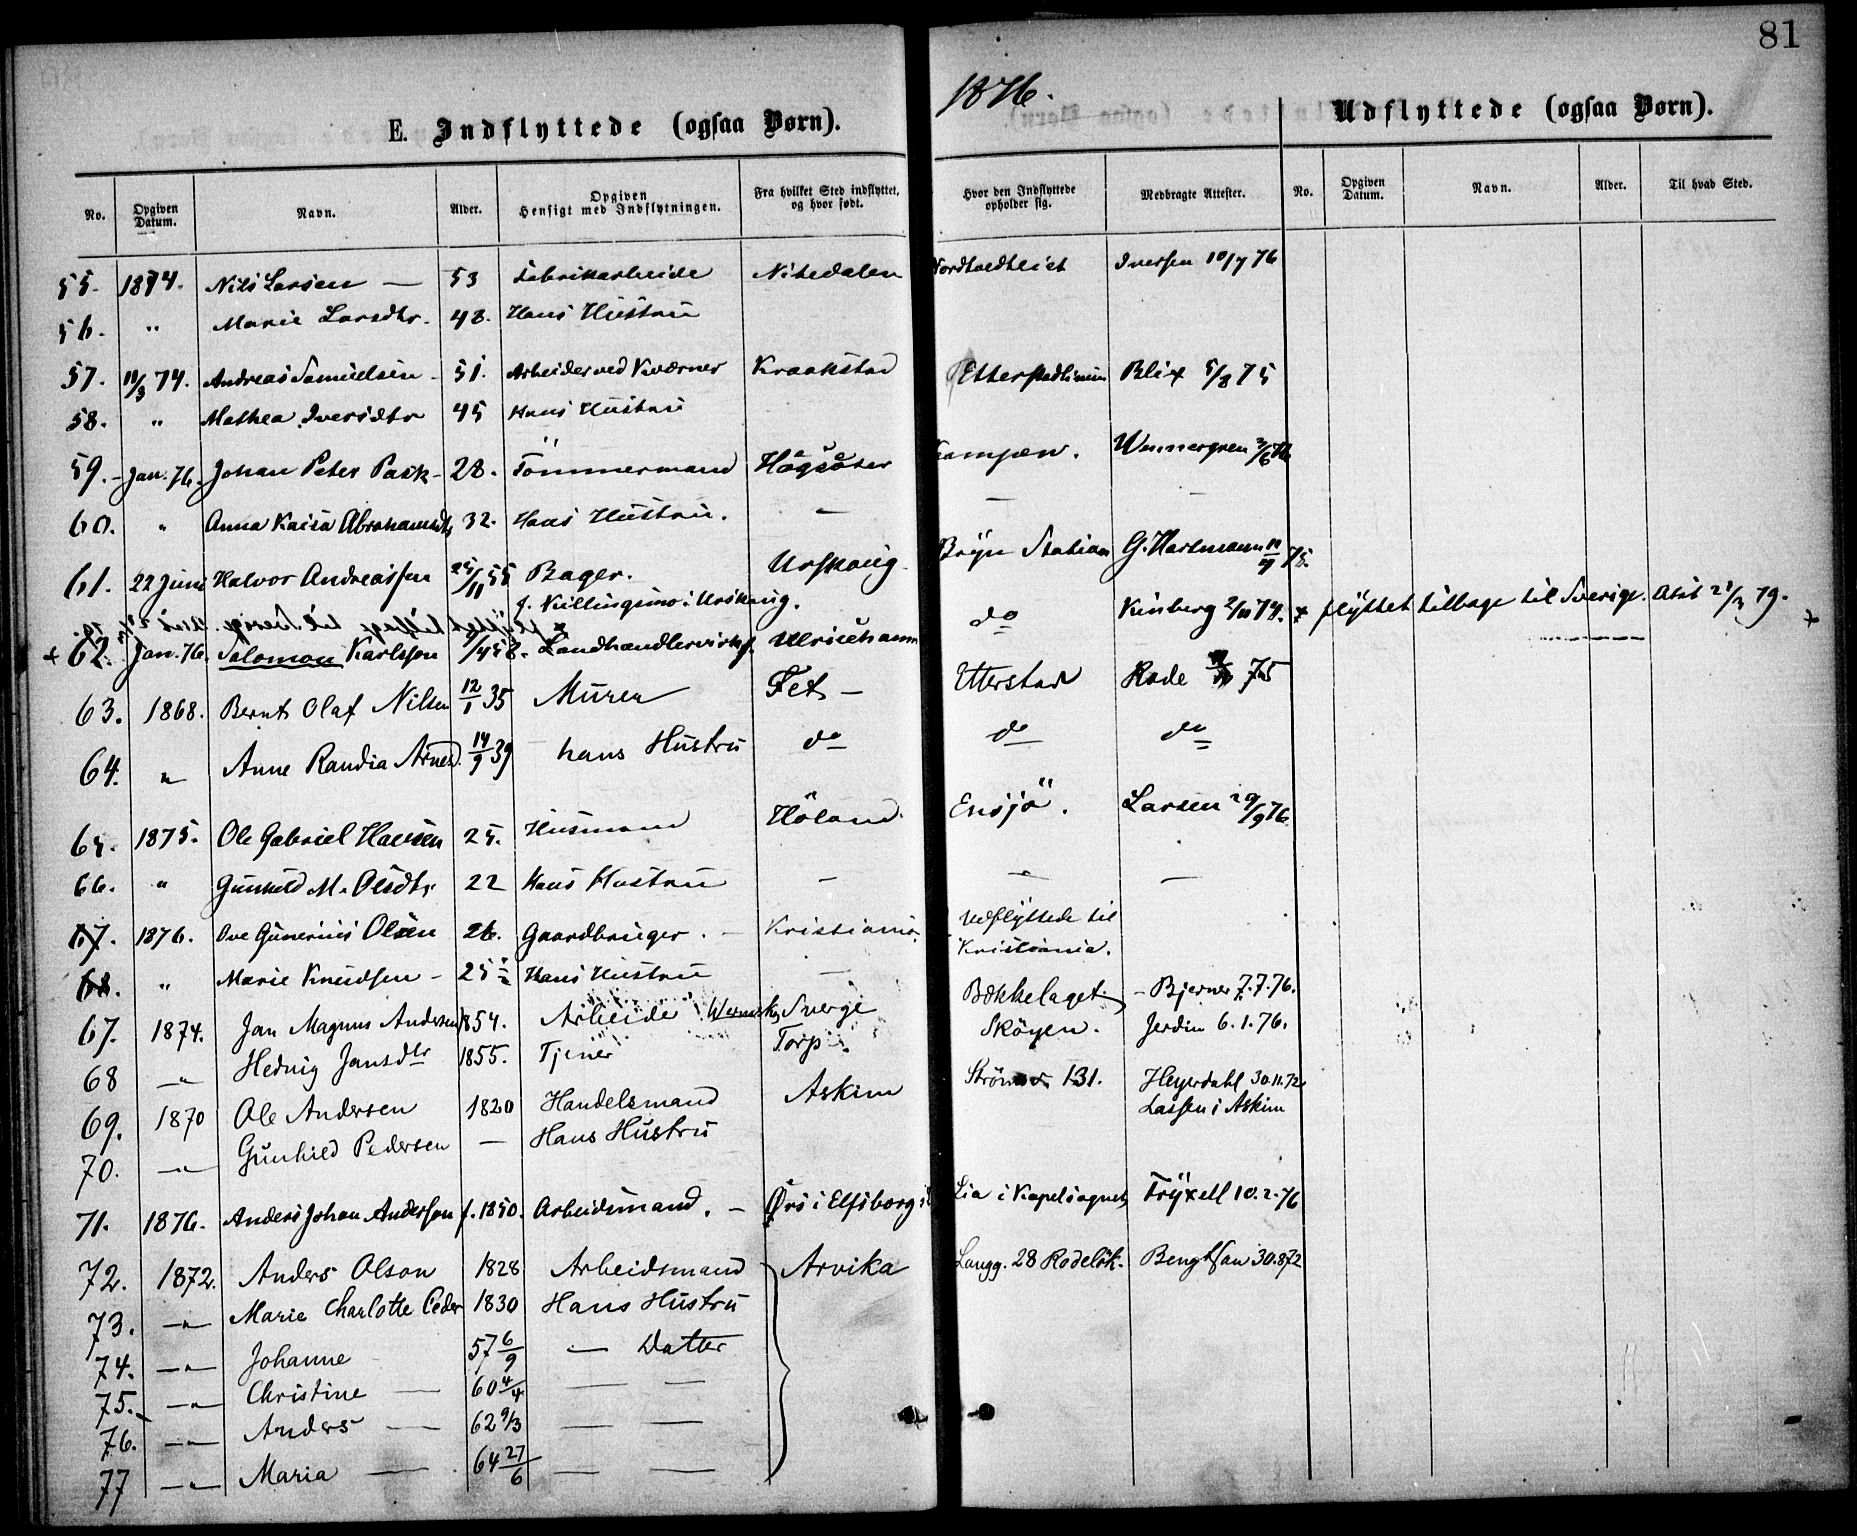 81
1876.
E. Indflyttede (ogsaa Børn).
Udflyttede (ogsaa Børn).
No. Opgiven Datum. Navn. Alder. Opgiven Hensigt med Indflytningen. Fra hvilket Sted indflyttet, og hvor født. Hvor den Indflyttede opholder sig. Medbragte Attester. No. Opgiven Datum. Navn. Alder. Til hvad Sted.
55. 1874. Nils Larsen — 53 Fabrikarbeide Nitedalen Iversen 10/7 76
56. " Marie Larsdtr. 48. Hans Hustru
57. 11/3 74. Andreas Samuelsen - 51. Arbeider ved Kværner Kraakstad Etterstadlinien Blix 5/8 75
58. " Mathea Iversdtr 45 Hans Hustru
59. - Jan. 76. Johan Peter Pask - 28. Tömmermand Högsäter Kampen. Wennergren 3/6 76
60. " Anna Kaisa Abrahamsdtr 32. Hans Hustru. — — —
61. 22 Juni Halvor Andreassen 25/11 55 Bager. Urskoug Bryn Station G. Hartmann 11/7 75.
f. Killingmo i Urskoug.
+ 62. Jan. 76. Salomon Karlsson /4 58. Landhandlervirks. Ulricehamn do Kinberg 2/10 74. + flyttet tilbage til Sverige. Atst 21/3 79. +
63. 1868. Bernt Olaf Nilsen 12/1 35 Murer Fet — Etterstad Rode 75
64. " Anne Randia Arnesd. 14/9 39 hans Hustru do do do
65. 1875. Ole Gabriel Hansen 25. Husmand Höland. Ensjö. Larsen 29/9 76.
66. " Gunhild M. Olsdtr 22 Hans Hustru — — —
67. 1876. Ove Gunerius Olsen 26. Gaardbruger. — Kristiania Udflyttede til Kristiania.
68. " Marie Knudsen - 25 Hans Hustru —
67. 1874. Jan Magnus Andersen 1854. Arbeide Wermsk, Sverge Bækkelaget. - Bjerner 7.7.76.
68 —"— Hedvig Jansdtr 1855. Tjener Torp. Sköyen. Jerdin 6.1.76.
69. 1870 Ole Andersen 1820 Handelsmand Askim Strömsv 131. Heyerdahl 30.11.72 Lassen i Askim
70. —"— Gunhild Pedersen — Hans Hustru
71. 1876. Anders Johan Anderson f. 1850. Arbeidsmand. — Örs i Elfsborgs l Lia i Kapelsognet, Fryxell 10.2.76
72. 1872. Anders Olson 1828 Arbeidsmand Arvika Langg. 28 Rodelök. Bengtson 30.8 72
73. —"— Marie Charlotte Peder 1830 Hans Hustru
74. —"— Johanne 57 6/9 — Datter
75. —"— Christine — 60 4/4 — —
76. —"— Anders — 62 9/3 — —
77 —"— Maria — 64 27/6 — —